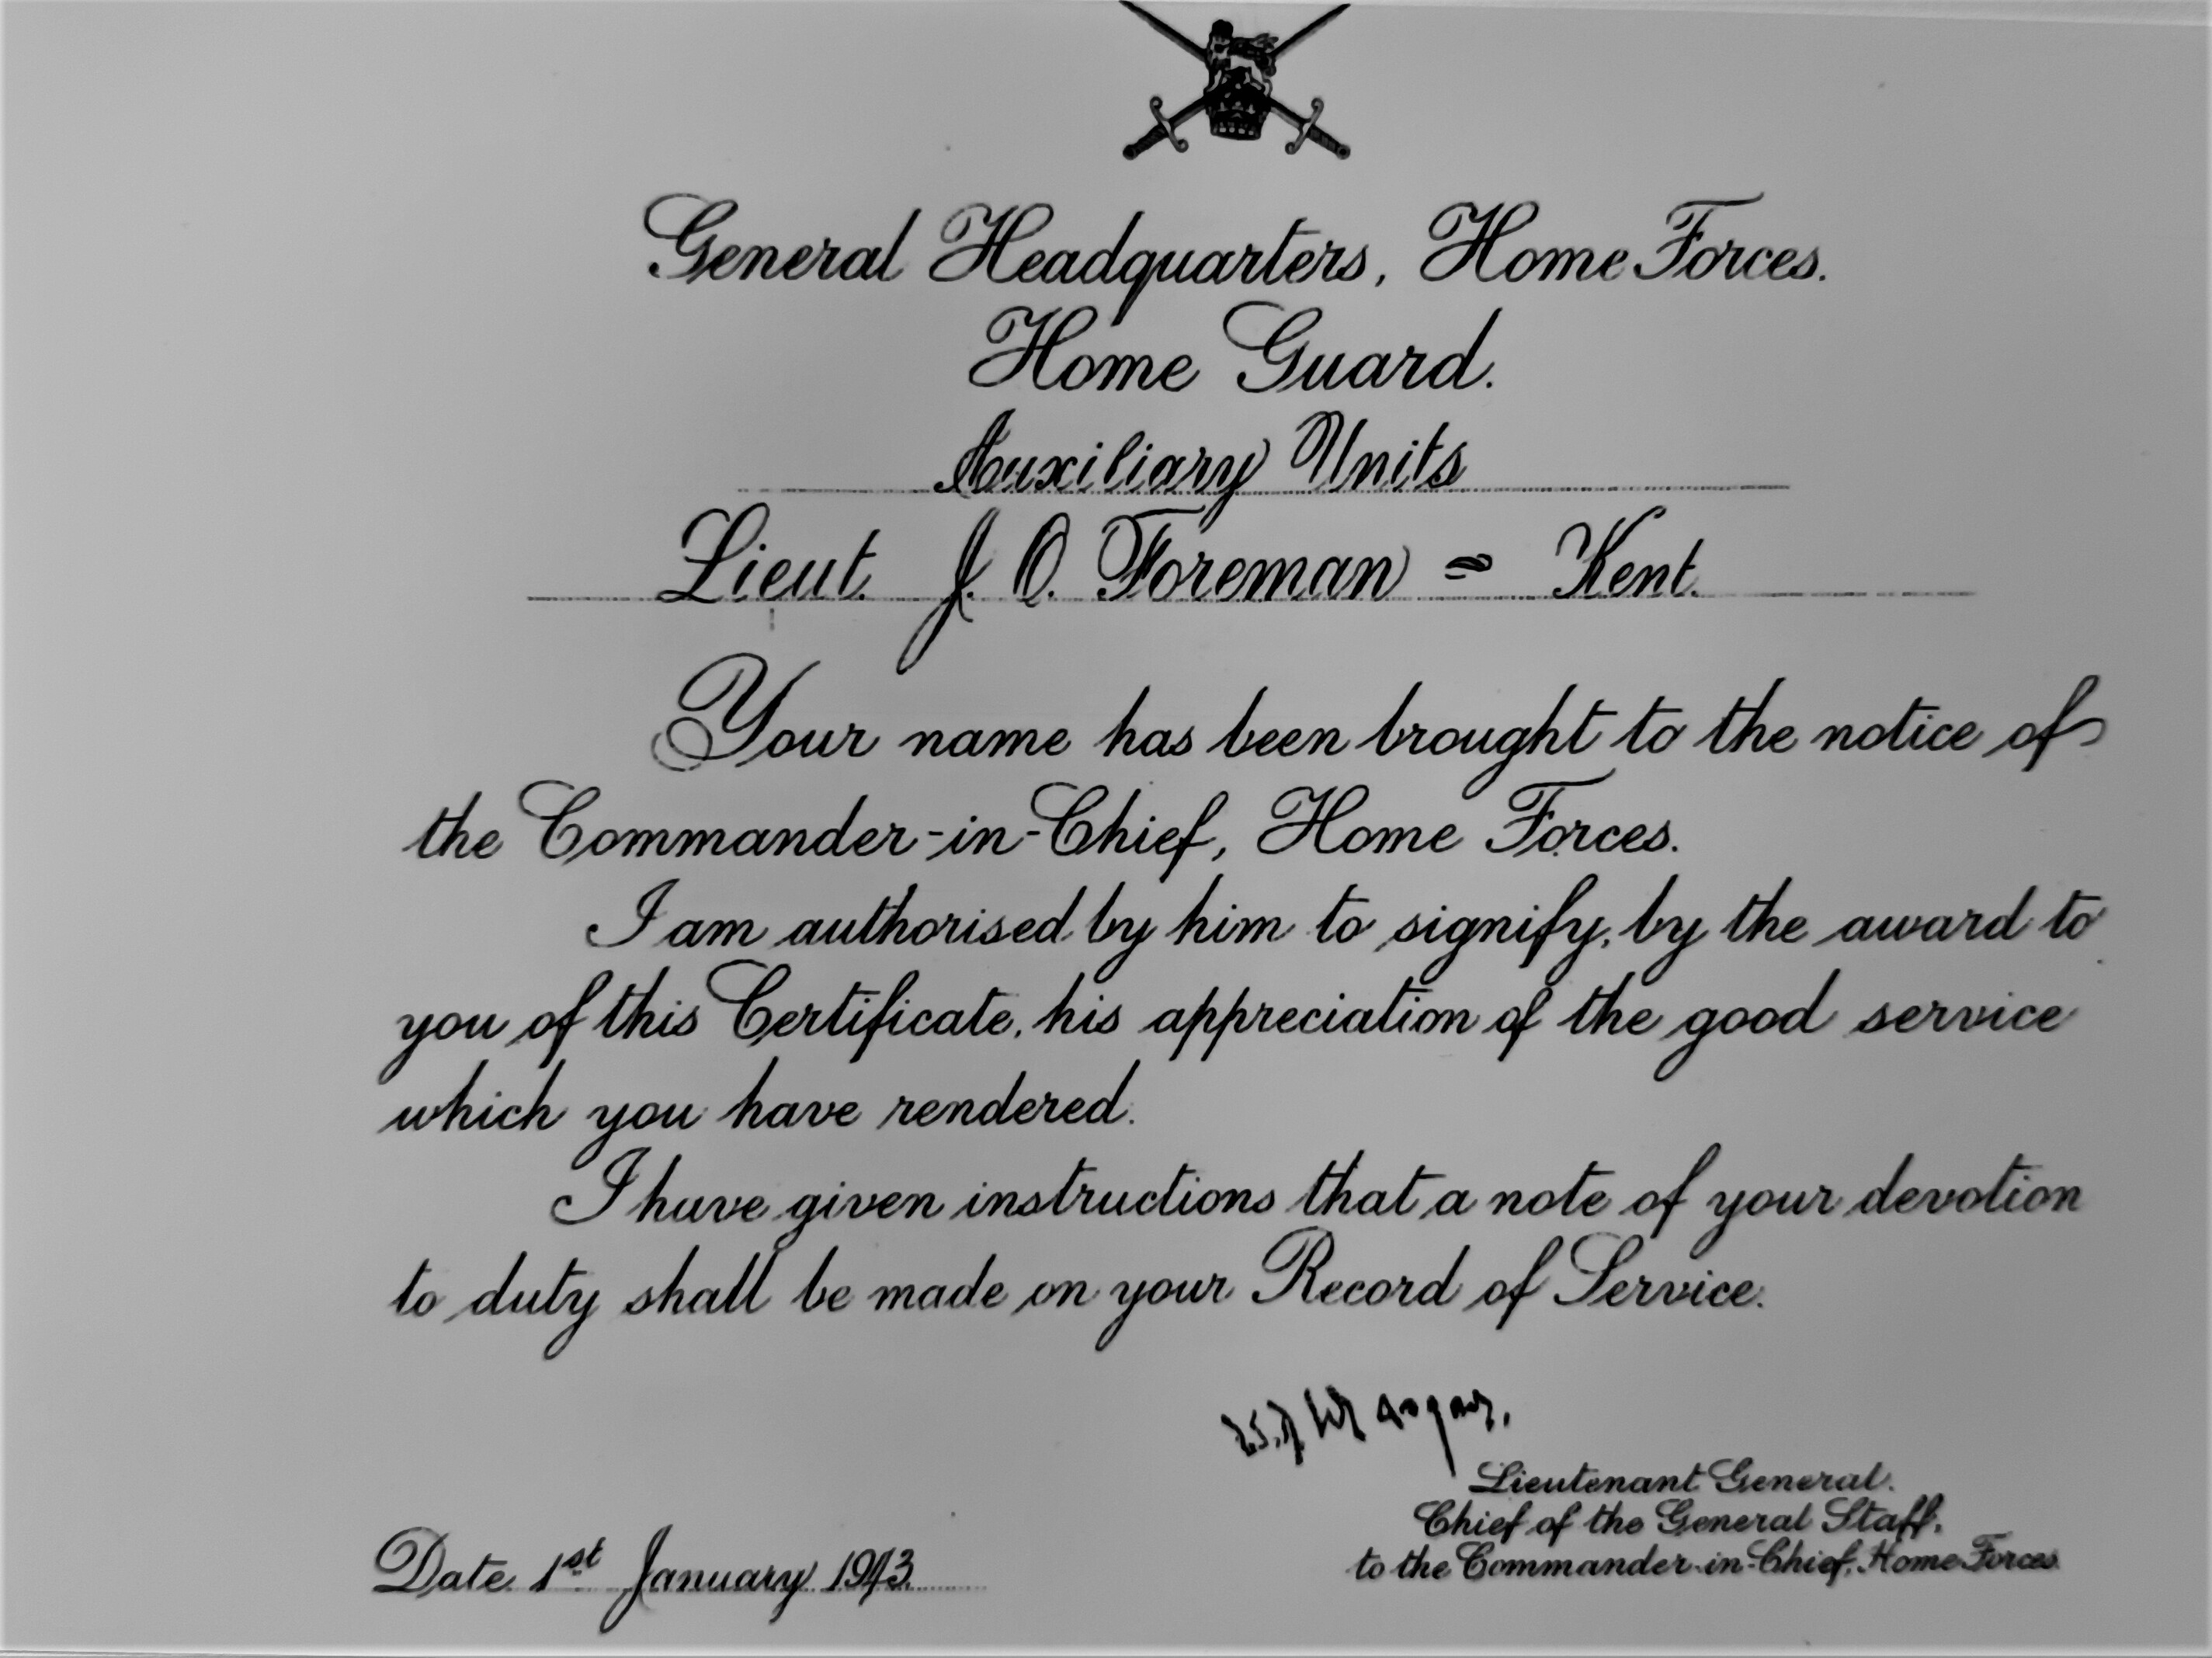 General Headquarters, Home Forces.
Home Guard.
Auxiliary Units
Lieut. J. O. Foreman = Kent.
Your name has been brought to the notice of
the Commander-in-Chief, Home Forces.
I am authorised by him to signify, by the award to
you of this Certificate, his appreciation of the good service
which you have rendered.
I have given instructions that a note of your devotion
to duty shall be made on your Record of Service.
Lieutenant General.
Chief of the General Staff,
to the Commander-in-Chief, Home Forces
Date 1st January 1943.